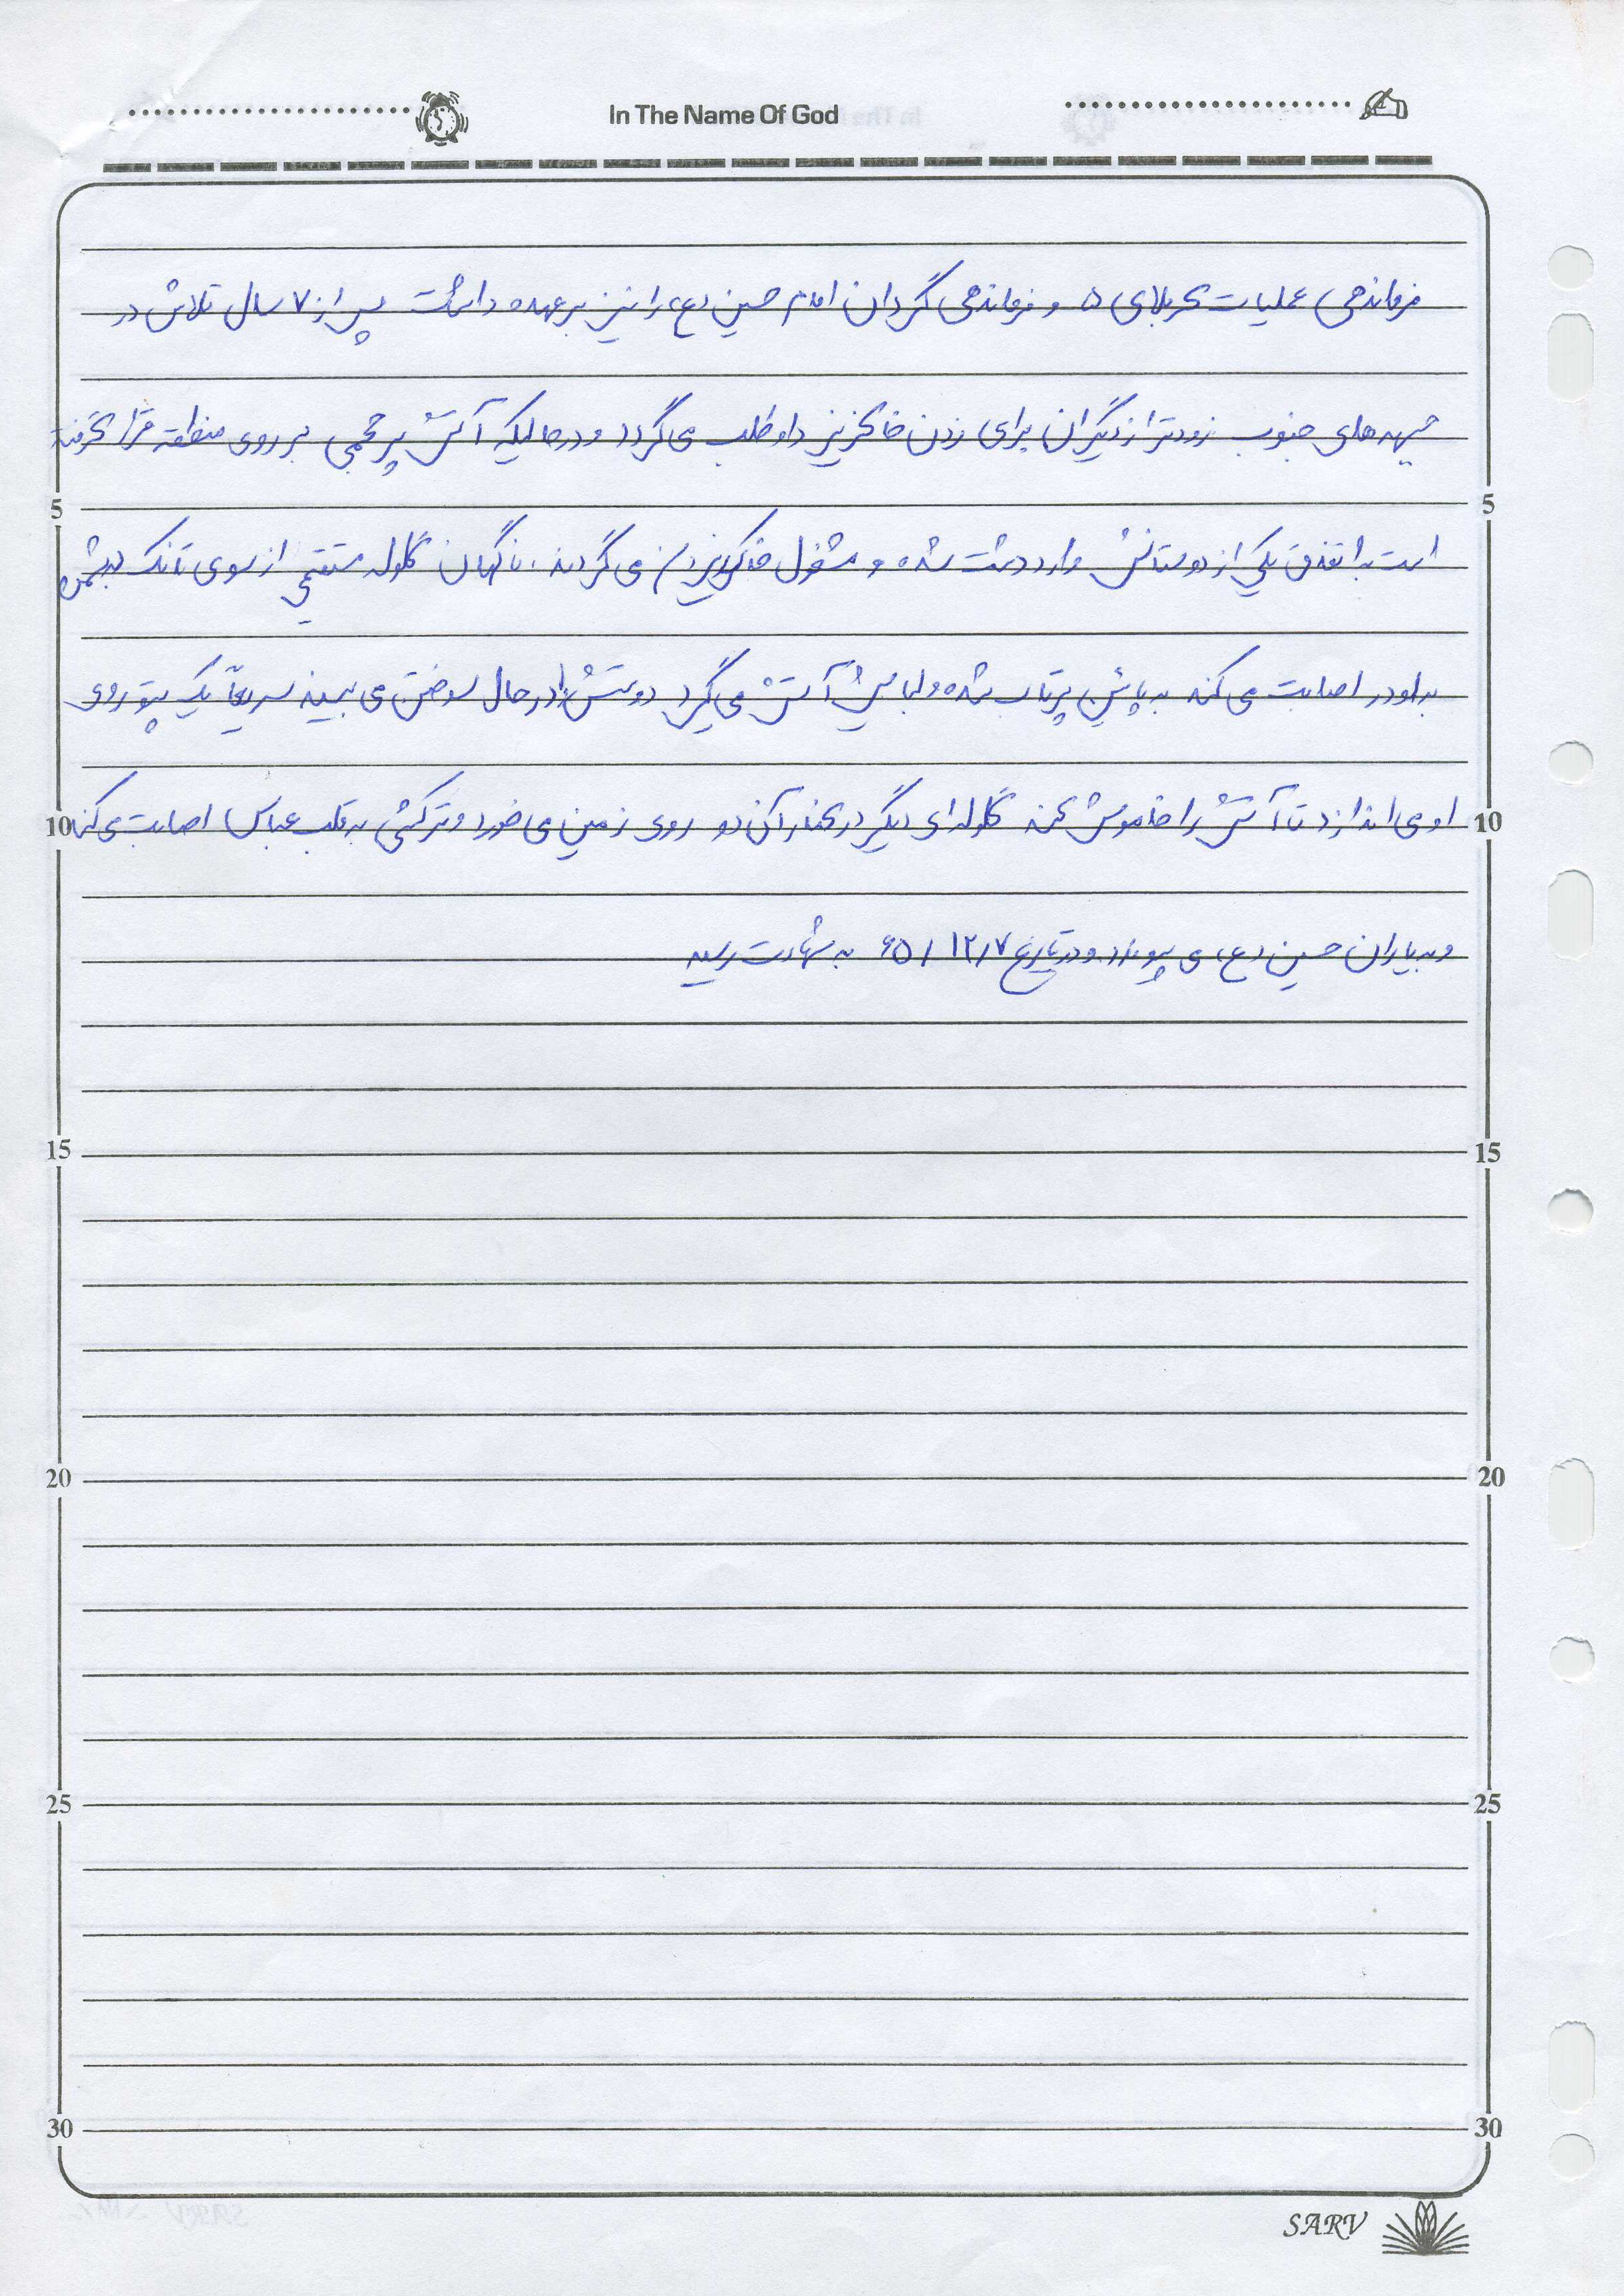 In The Name Of God
فرماندهی عملیات کربلای ۵ و فرماندهی گردان امام حسین (ع) را نیز برعهده داشت پس از ۷ سال تلاش در
جبهه های جنوب زودتر از دیگران برای زدن خاکریز داوطلب می گردد و درحالیکه آتش پرحجمی بر روی منطقه قرار گرفته
5 5
است به اتفاق یکی از دوستانش وارد دشت شده و مشغول خاکریز زدن می گردند. ناگهان گلوله مستقیمی از سوی تانک دشمن
به لودر اصابت می کند به پائین پرتاب شده و لباسش آتش می گیرد دوستش او را در حال سوختن می بیند سریعاً یک پتو روی
10 او می اندازد تا آتش را خاموش کند گلوله ای دیگر در کنار آن دو روی زمین می خورد و ترکشی به قلب عباس اصابت می کند 10
و به یاران حسین (ع) می پیوندد و در تاریخ ۶۵/۱۲/۷ به شهادت رسید
15 15
20 20
25 25
30 30
SARV